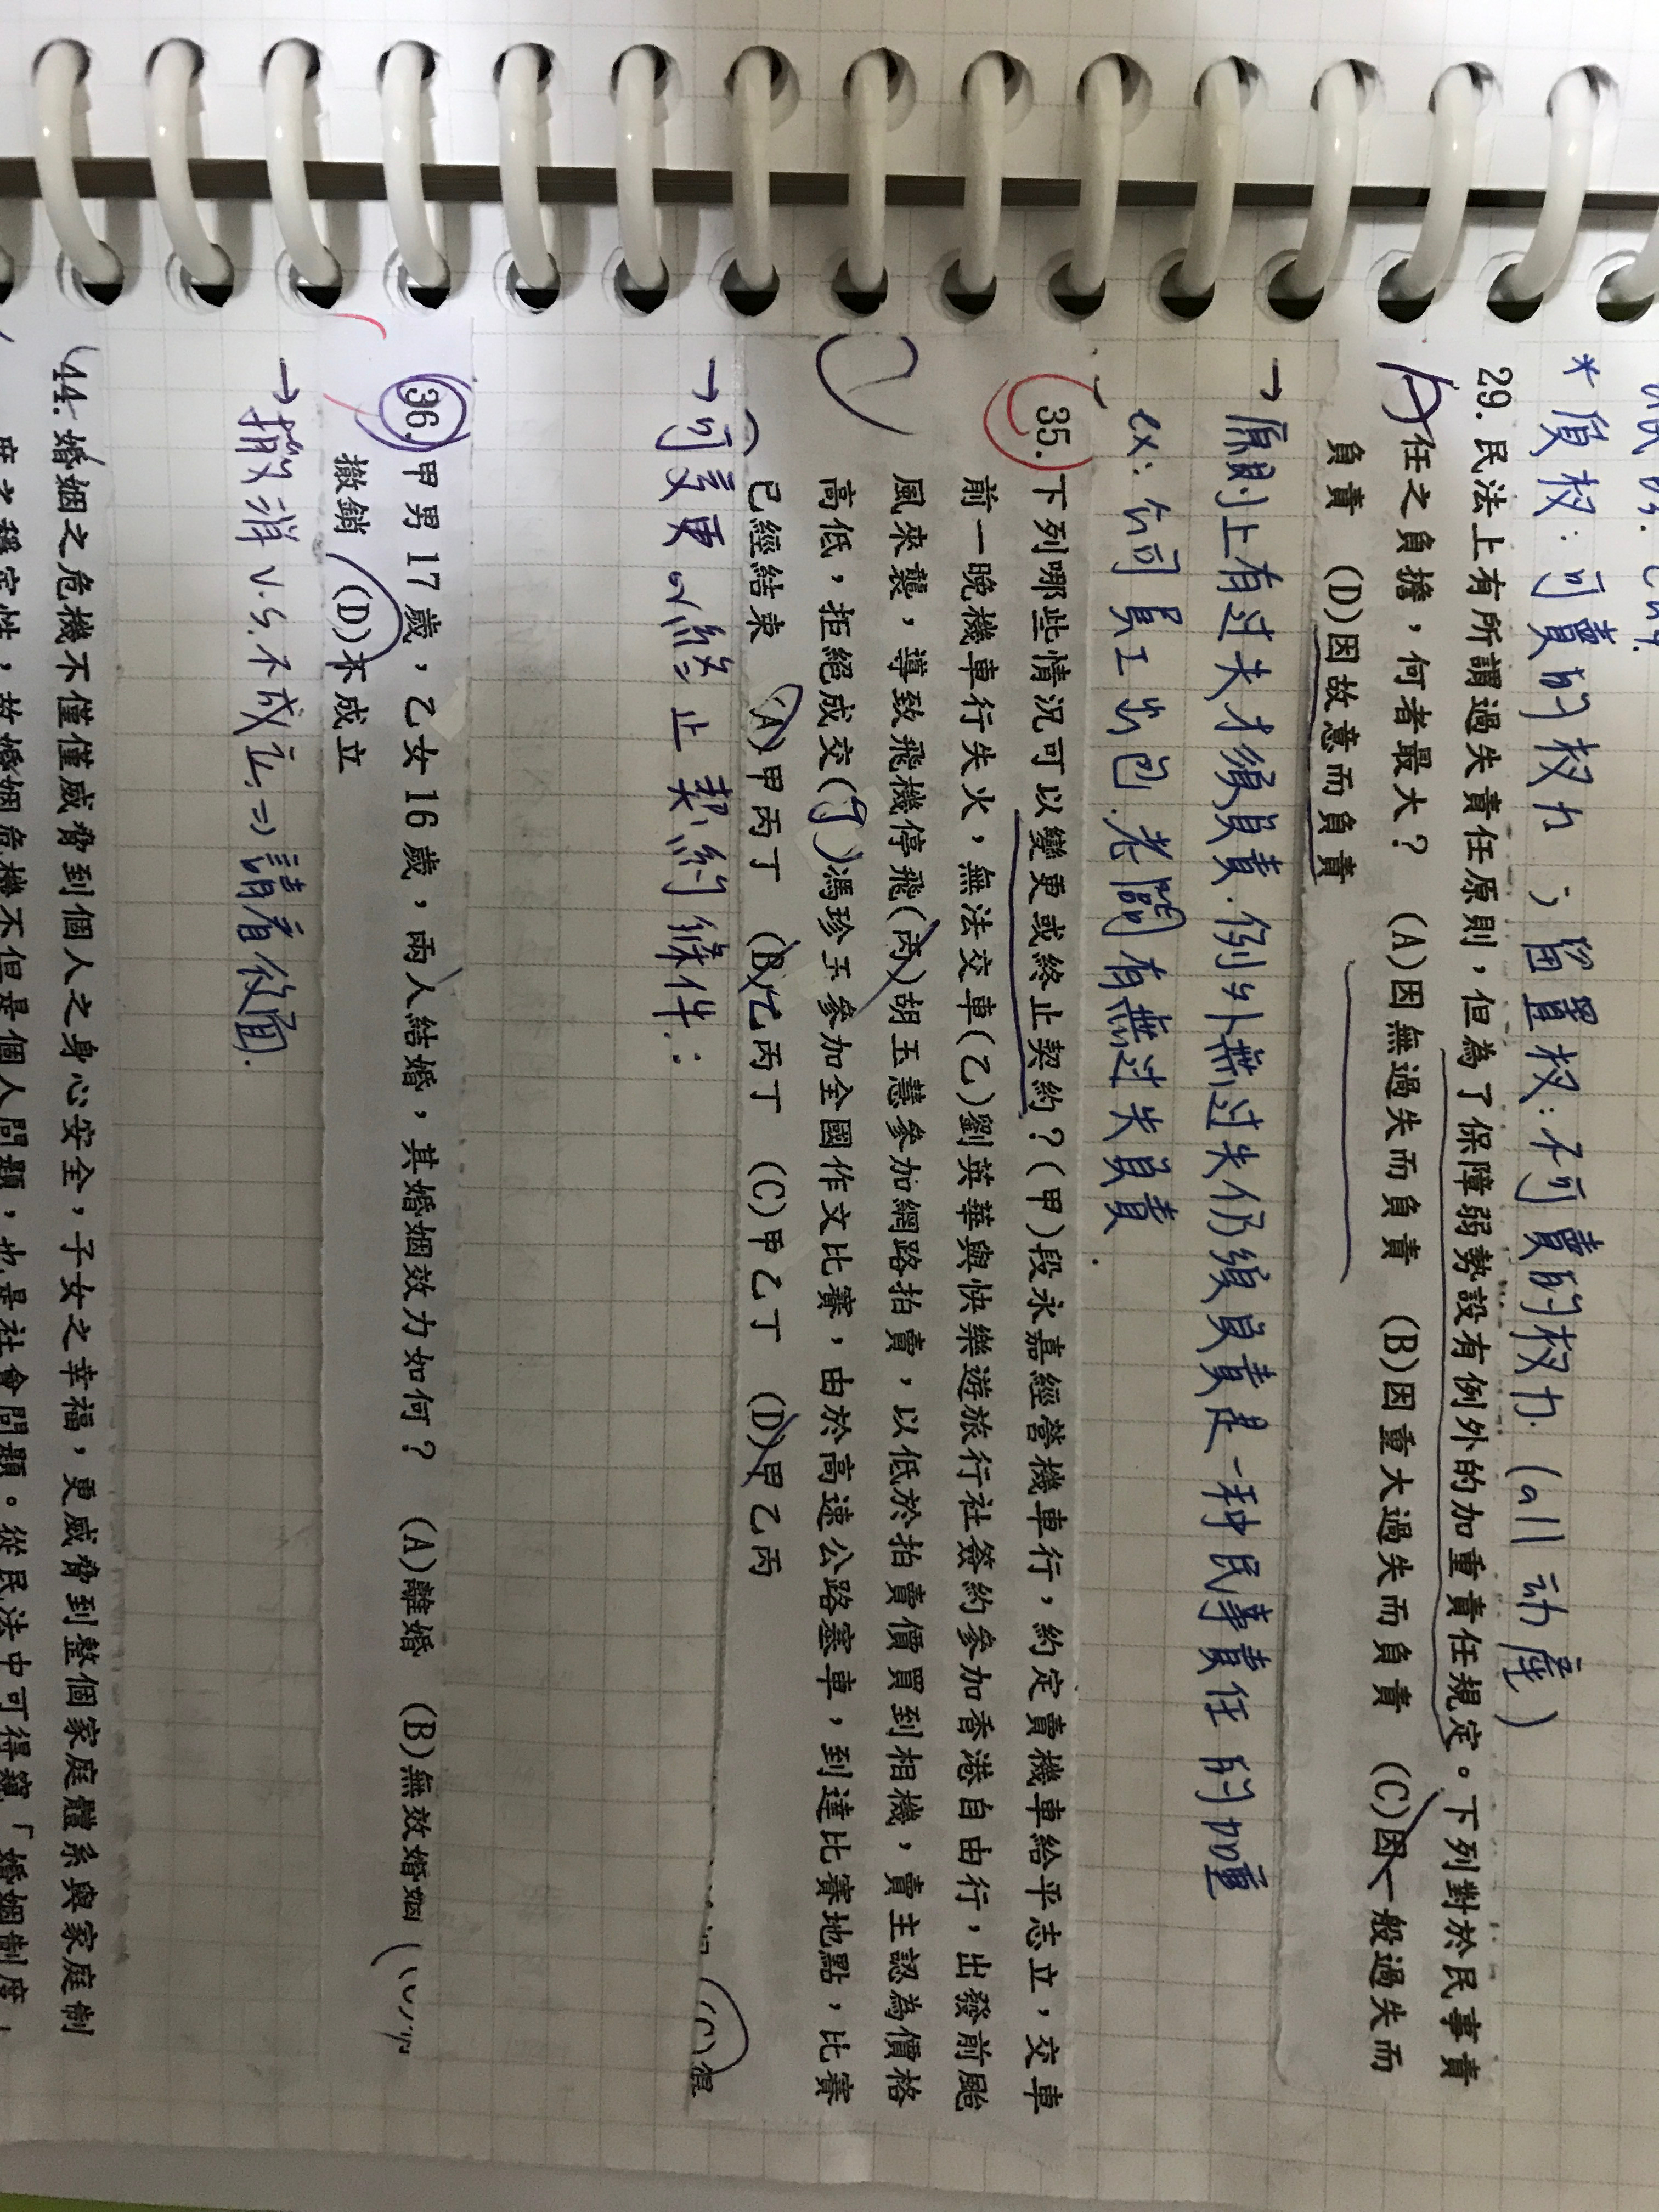 *債权:可賣的权力；留置权:不可賣的权力.(all 动产)
29.民法上有所謂過失責任原則，但為了保障弱勢設有例外的加重責任規定。下列對於民事責
任之負擔，何者最大？ (A)因無過失而負責 (B)因重大過失而負責 (C)因一般過失而
負責 (D)因故意而負責
→原則上有过失才須負責.例外無过失仍須負責是一种民事責任的加重
ex:公司員工出包.老闆有無过失負責.
35.下列哪些情況可以變更或終止契約？(甲)段永嘉經營機車行，約定賣機車給平志立，交車
前一晚機車行失火，無法交車(乙)劉英華與快樂遊旅行社簽約參加香港自由行，出發前颱
風來襲，導致飛機停飛(丙)胡玉慧參加網路拍賣，以低於拍賣價買到相機，賣主認為價格
高低，拒絕成交(丁)馮珍玉參加全國作文比賽，由於高速公路塞車，到達比賽地點，比賽
已經結束 (A)甲丙丁 (B)乙丙丁 (C)甲乙丁 (D)甲乙丙
→可变更or終止契約條件:
36.甲男17歲，乙女16歲，兩人結婚，其婚姻效力如何？ (A)離婚 (B)無效婚姻
撤銷 (D)不成立
→撤消 v.s.不成立⇒請看後面.
44.婚姻之危機不僅僅威脅到個人之身心安全，子女之幸福，更威脅到整個家庭體系與家庭制
度之穩定性，故婚姻危機不但是個人問題，也是社會問題。從民法中可得窺「婚姻制度」